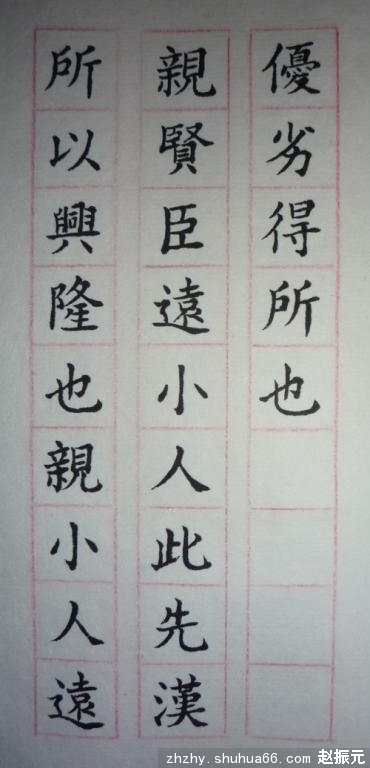 優劣得所也
親賢臣遠小人此先漢
所以興隆也親小人遠
zhzhy.shuhua66.com 赵振元